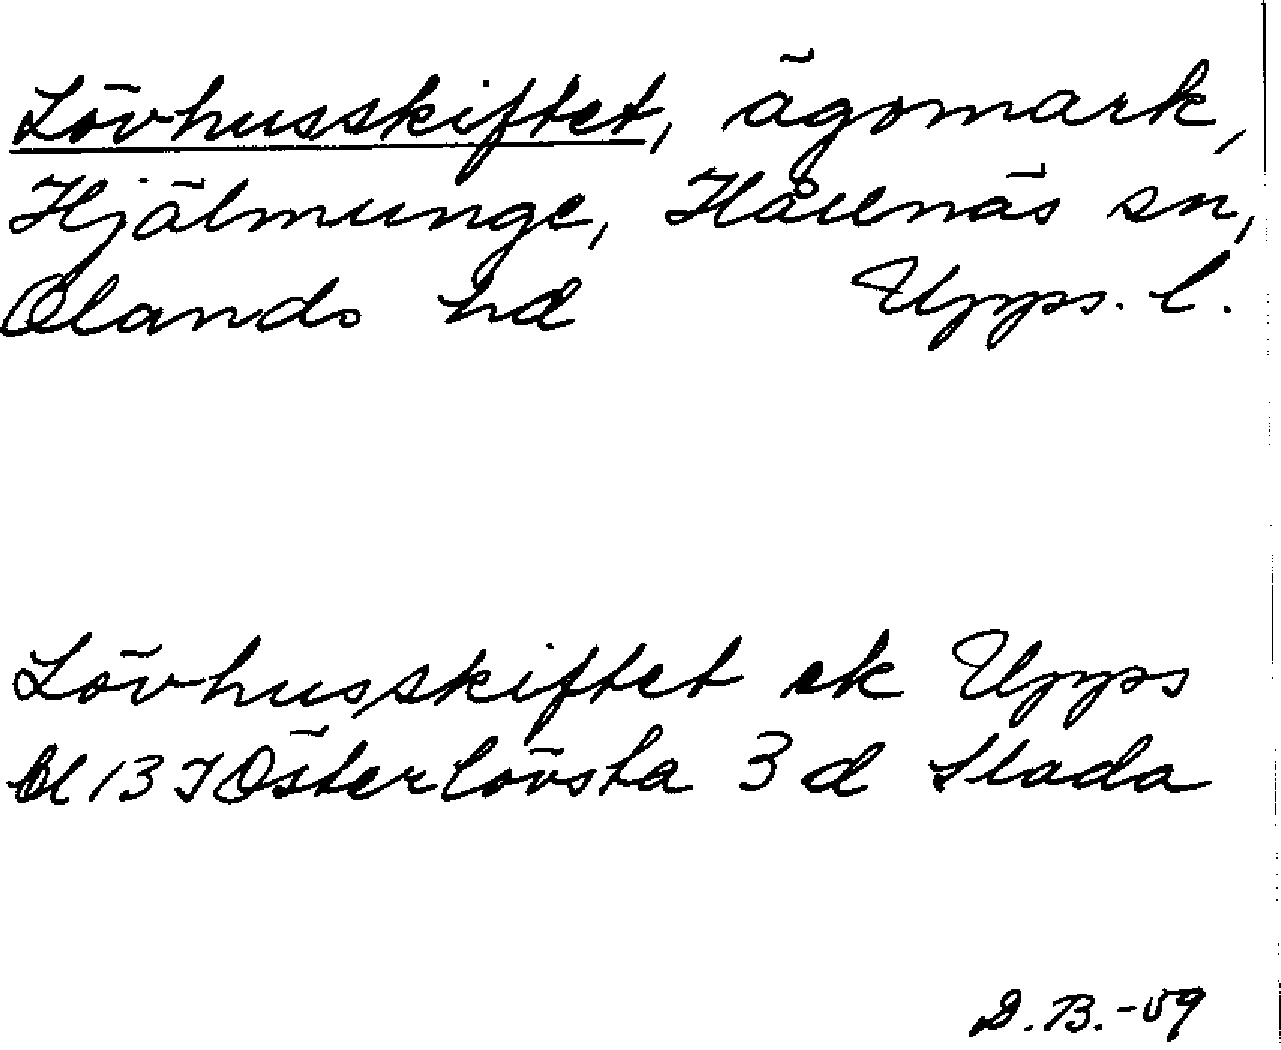 Lövhusskiftet, ägomark,
Hjälmunge, Hållnäs sn,
Olands hd Upps. l.
Lövhusskiftet ek Upps
bl 13 I Österlövsta 3 d Slada
D.B.-59